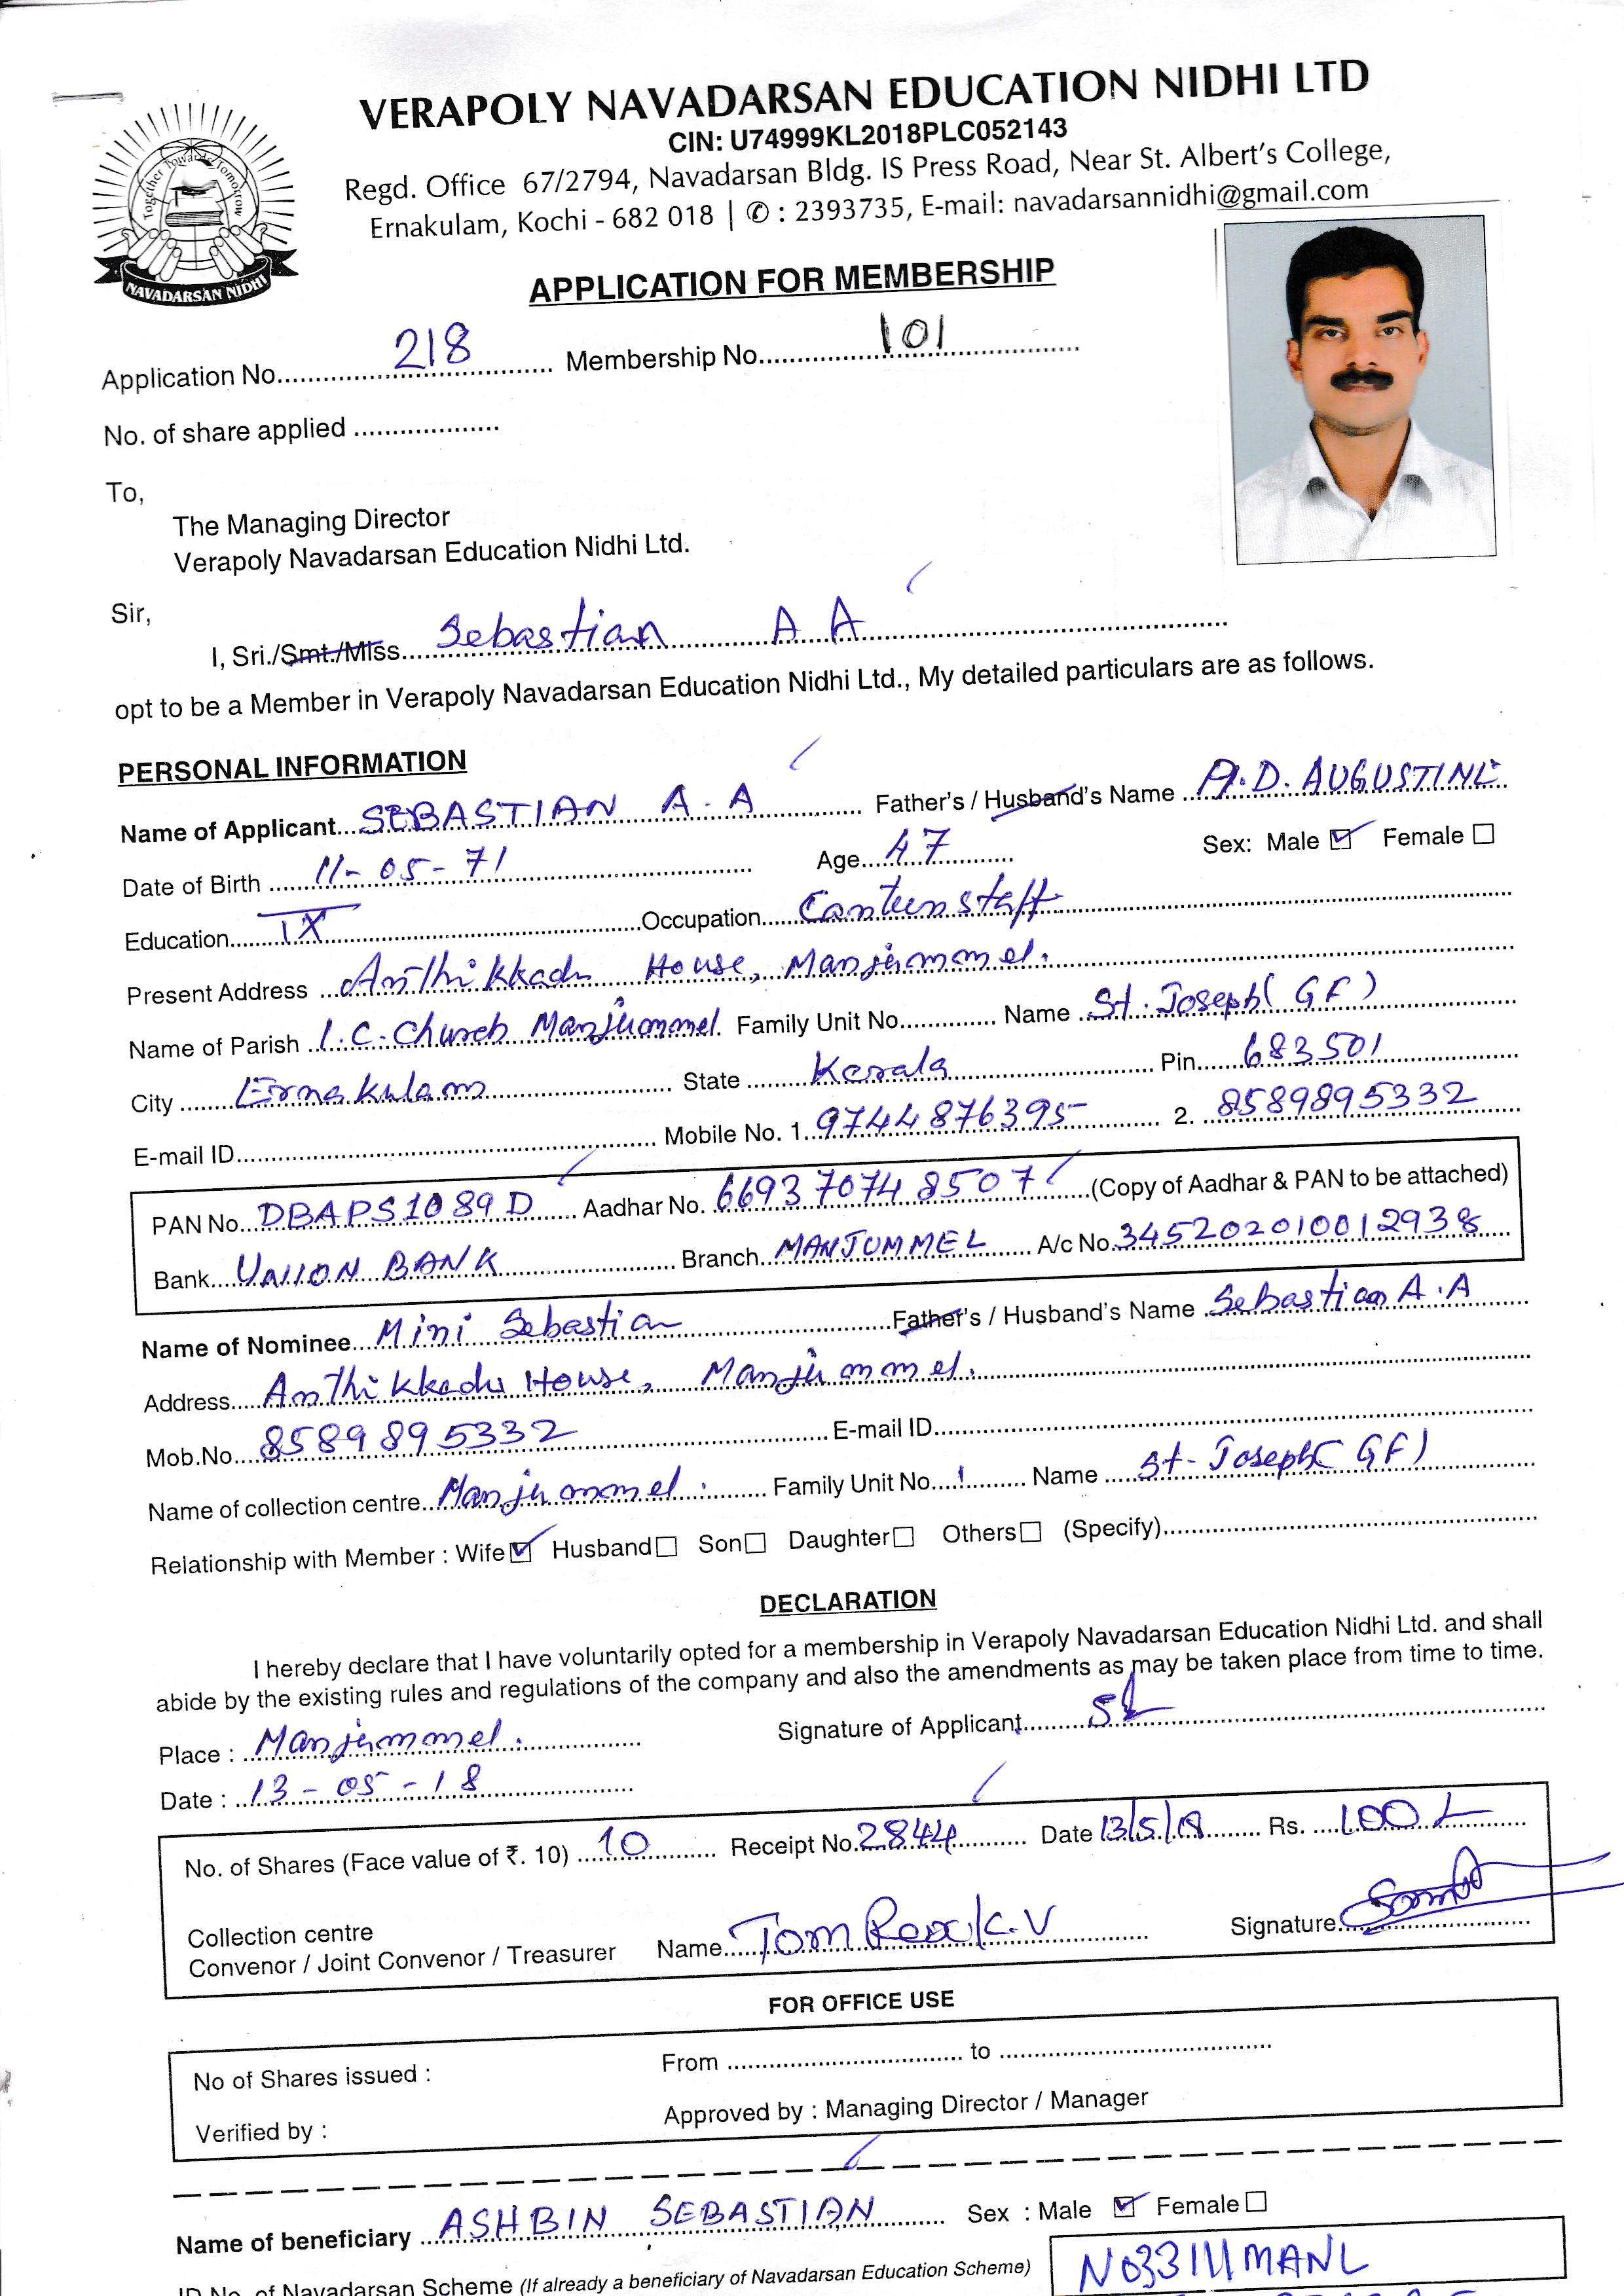 VERAPOLY NAVADARSAN EDUCATION NIDHI LTD
CIN: U74999KL2018PLC052143
Regd. Office 67/2794, Navadarsan Bldg. IS Press Road, Near St. Albert's College,
Ernakulam, Kochi - 682 018 | ✆ : 2393735, E-mail: navadarsannidhi@gmail.com
Together Towards Tomorrow
NAVADARSAN NIDHI
APPLICATION FOR MEMBERSHIP
Application No. 218 Membership No. 101
No. of share applied
To,
The Managing Director
Verapoly Navadarsan Education Nidhi Ltd.
Sir,
I, Sri./Smt./Miss. Sebastian A A
opt to be a Member in Verapoly Navadarsan Education Nidhi Ltd., My detailed particulars are as follows.
PERSONAL INFORMATION
Name of Applicant SEBASTIAN A.A Father's / Husband's Name A.D. AUGUSTINE
Date of Birth 11-05-71 Age 47 Sex: Male ☑ Female ☐
Education IX Occupation Canteen staff
Present Address Anthikkadu House, Manjummel.
Name of Parish I.C. Church Manjummel Family Unit No. Name St. Joseph (GF)
City Ernakulam State Kerala Pin 683501
E-mail ID Mobile No. 1. 9744876395 2. 8589895332
PAN No. DBAPS1089D Aadhar No. 6693 7074 8507 (Copy of Aadhar & PAN to be attached)
Bank UNION BANK Branch MANJUMMEL A/c No. 345202010012938
Name of Nominee Mini Sebastian Father's / Husband's Name Sebastian A.A
Address Anthikkadu House, Manjummel.
Mob.No. 8589895332 E-mail ID
Name of collection centre Manjummel. Family Unit No. 1 Name St- Joseph (GF)
Relationship with Member : Wife ☑ Husband ☐ Son ☐ Daughter ☐ Others ☐ (Specify)
DECLARATION
I hereby declare that I have voluntarily opted for a membership in Verapoly Navadarsan Education Nidhi Ltd. and shall
abide by the existing rules and regulations of the company and also the amendments as may be taken place from time to time.
Place : Manjummel. Signature of Applicant
Date : 13-05-18
No. of Shares (Face value of ₹. 10) 10 Receipt No. 2844 Date 13/5/18 Rs. 100
Collection centre
Convenor / Joint Convenor / Treasurer Name Tom Rex K.V Signature
FOR OFFICE USE
No of Shares issued : From to
Verified by : Approved by : Managing Director / Manager
Name of beneficiary ASHBIN SEBASTIAN Sex : Male ☑ Female ☐
ID No. of Navadarsan Scheme (If already a beneficiary of Navadarsan Education Scheme)